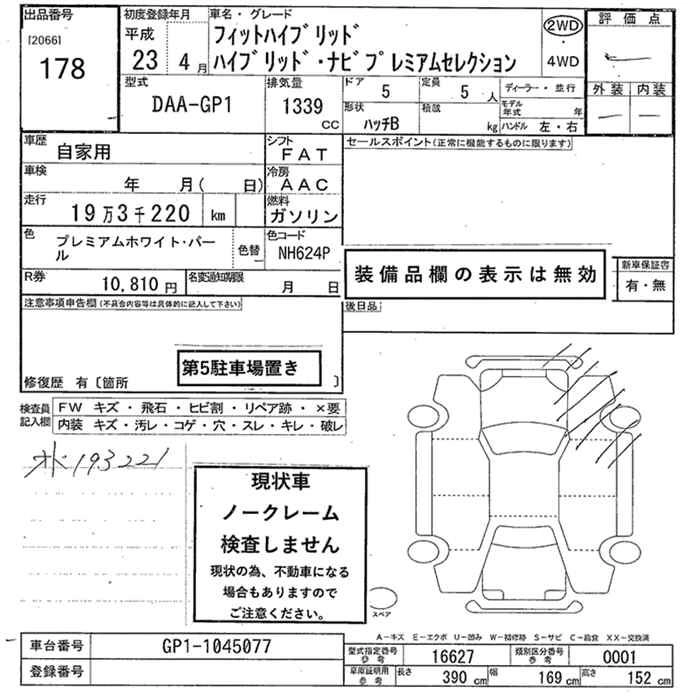 出品番号
[2066]
178
初度登録年月
平成
23 4 月
車名・グレード
フィットハイブリッド
ハイブリッド・ナビプレミアムセレクション
2WD
・
4WD
評価点
外装 内装
型式
DAA-GP1
排気量
1339
CC
ドア
5
定員
5 人
ディーラー・並行
形状
ハッチB
積載
kg
モデル年式 年
ハンドル 左・右
車歴
自家用
シフト
FAT
セールスポイント(正常に機能するものに限ります)
車検
年 月( 日)
冷房
AAC
走行
19万3千220 km
燃料
ガソリン
色
プレミアムホワイト・パール
色替
色コード
NH624P
装備品欄の表示は無効
新車保証書
有・無
R券
10,810 円
名変過知期限
月 日
後日品
注意事項申告欄(不具合内容等は具体的に記入して下さい)
第5駐車場置き
修復歴 有〔箇所 〕
検査員記入欄
FW キズ・飛石・ヒビ割・リペア跡・×要
内装 キズ・汚レ・コゲ・穴・スレ・キレ・破レ
193221
現状車
ノークレーム
検査しません
現状の為、不動車になる
場合もありますので
ご注意ください。
スペア
A-キズ E-エクボ U-凹み W-補修跡 S-サビ C-腐食 XX-交換済
車台番号
GP1-1045077
型式指定番号
参考
16627
類別区分番号
参考
0001
登録番号
車庫証明用
参考
長さ
390 cm
幅
169 cm
高さ
152 cm